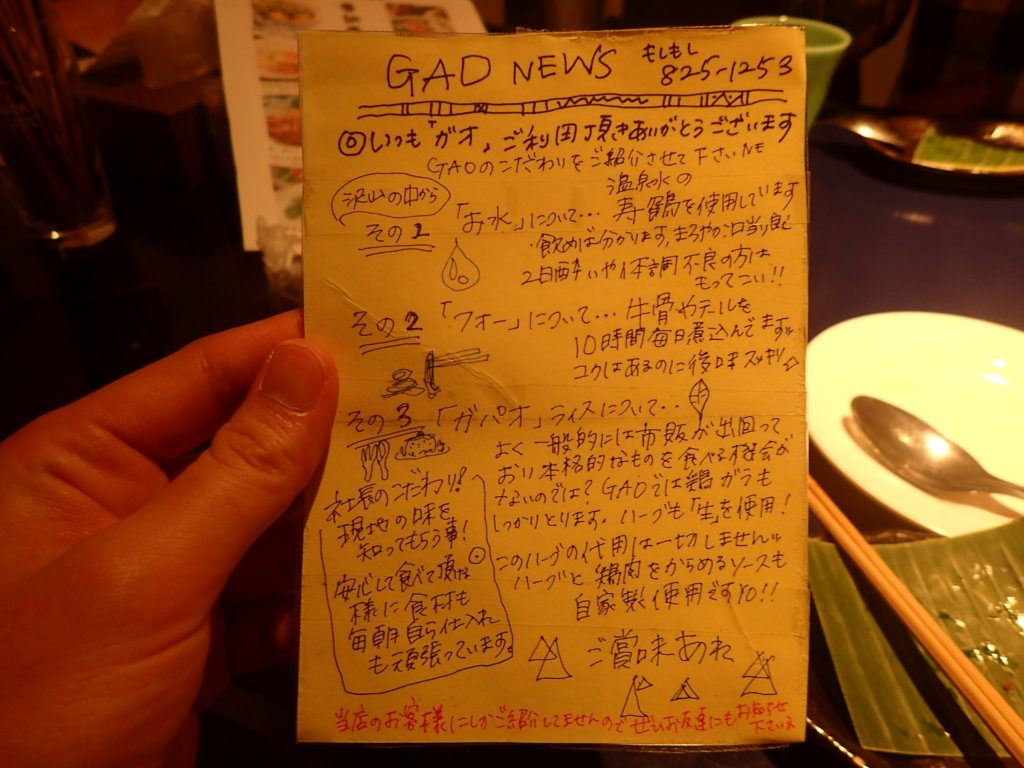 GAO NEWS
もしもし
825-1253
◎いつも「ガオ」ご利用頂きありがとうございます
GAOのこだわりをご紹介させて下さいNE
沢山の中から
その1
「お水」について… 温泉水の
寿鶴を使用しています
飲めば分かります、まろやか口当り良く
2日酔いや体調不良の方は
もってこい!!
その2
「フォー」について… 牛骨やテールを
10時間毎日煮込んでます
コクはあるのに後味スッキリ☆
その3
「ガパオ」ライスについて‥
よく一般的には市販が出回って
おり本格的なものを食べる機会が
ないのでは?GAOでは鶏ガラも
しっかりとります。ハーブも「生」を使用!
このハーブの代用は一切しません
ハーブと鶏肉をからめるソースも
自家製使用ですYO!!
社長のこだわり!
現地の味を
知ってもらう事!
安心して食べて頂ける
様に食材も
毎朝自ら仕入れ
も頑張っています。
ご賞味あれ
当店のお客様にしかご紹介してませんのでぜひお友達にもお知らせ
下さいネ